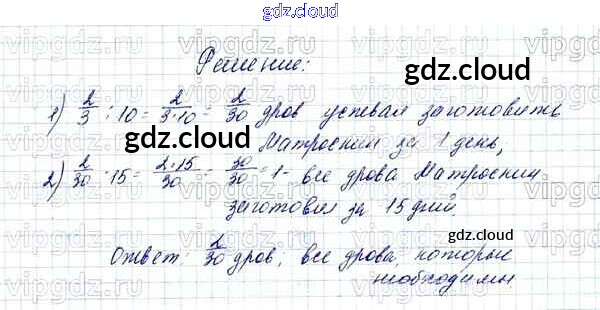 gdz.cloud
Решение:
gdz.cloud
1) 2/3 : 10 = 2/3·10 = 2/30 дров успевал заготовить
gdz.cloud
Матроскин за 1 день,
2) 2/30 · 15 = 2·15/30 = 30/30 = 1 - все дрова Матроскин
заготовил за 15 дней.
gdz.cloud
Ответ: 2/30 дров; все дрова, которые
необходимы